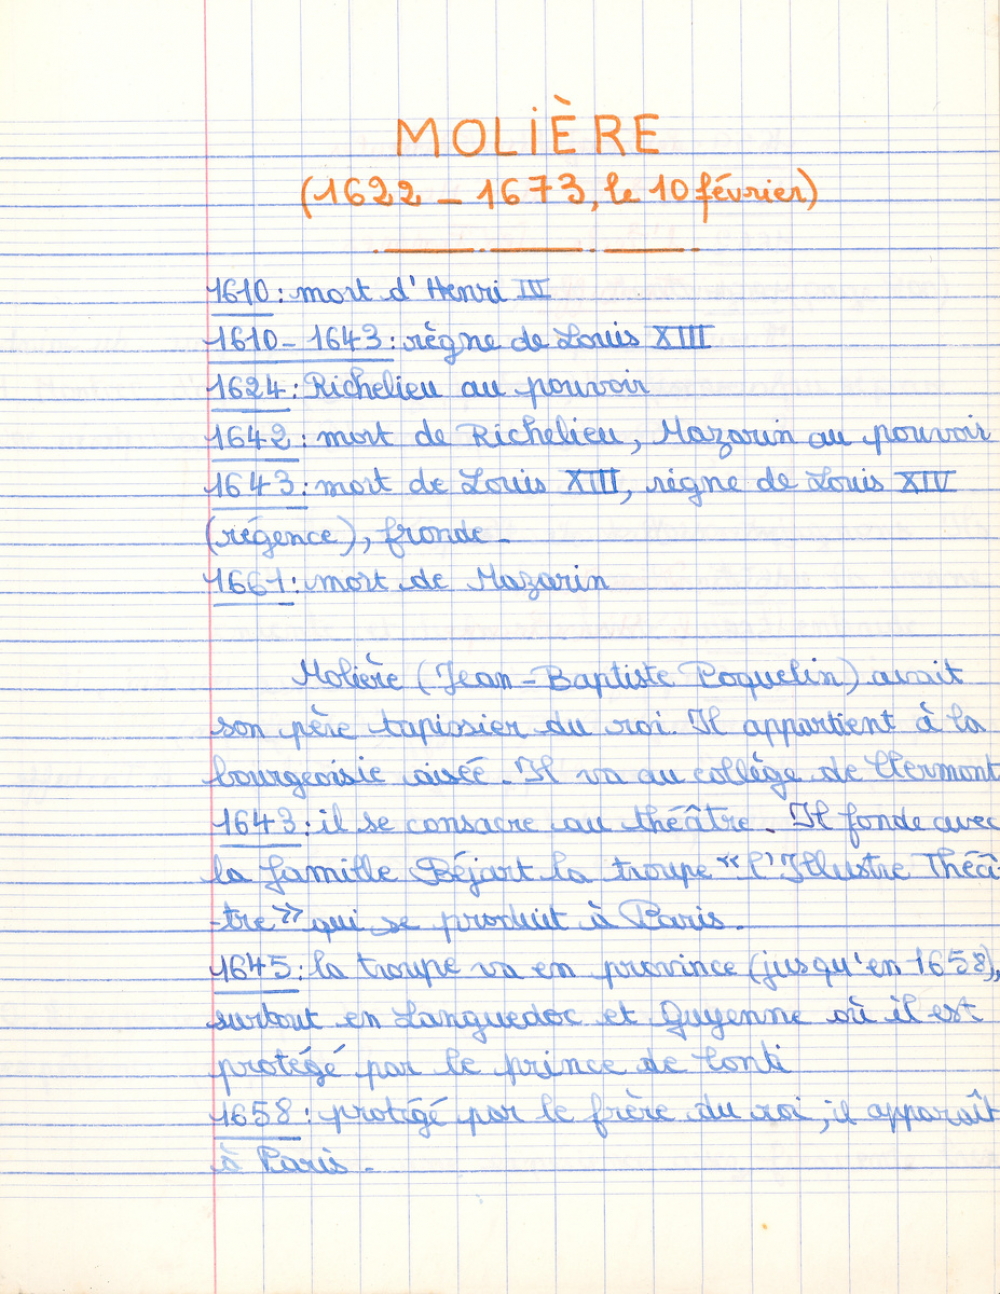 MOLIÈRE
(1622 - 1673, le 10 février)
1610 : mort d'Henri IV
1610 - 1643 : règne de Louis XIII
1624 : Richelieu au pouvoir
1642 : mort de Richelieu, Mazarin au pouvoir
1643 : mort de Louis XIII, règne de Louis XIV
(régence), fronde.
1661 : mort de Mazarin
Molière (Jean-Baptiste Poquelin) avait
son père tapissier du roi. Il appartient à la
bourgeoisie aisée. Il va au collège de Clermont
1643 : il se consacre au théâtre. Il fonde avec
la famille Béjart la troupe "l'Illustre Théâ-
-tre" qui se produit à Paris.
1645 : la troupe va en province (jusqu'en 1658),
surtout en Languedoc et Guyenne où il est
protégé par le prince de Conti
1658 : protégé par le frère du roi, il apparaît
à Paris.